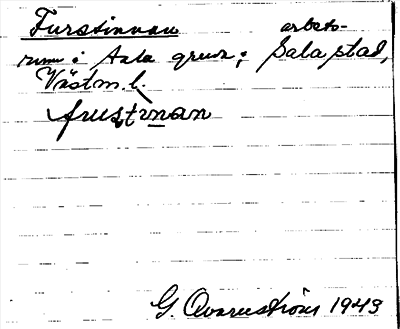 Furstinnan arbets-
rum i Sala gruva; Sala stad,
Västm. l.
frustinan
G. Qvarnström 1943